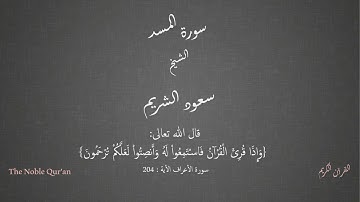 سورة المسد
الشيخ
سعود الشريم
قال الله تعالى:
{وَإِذَا قُرِئَ الْقُرْآنُ فَاسْتَمِعُواْ لَهُ وَأَنصِتُواْ لَعَلَّكُمْ تُرْحَمُونَ}
سورة الأعراف الآية : 204
The Noble Qur'an
القرآن الكريم